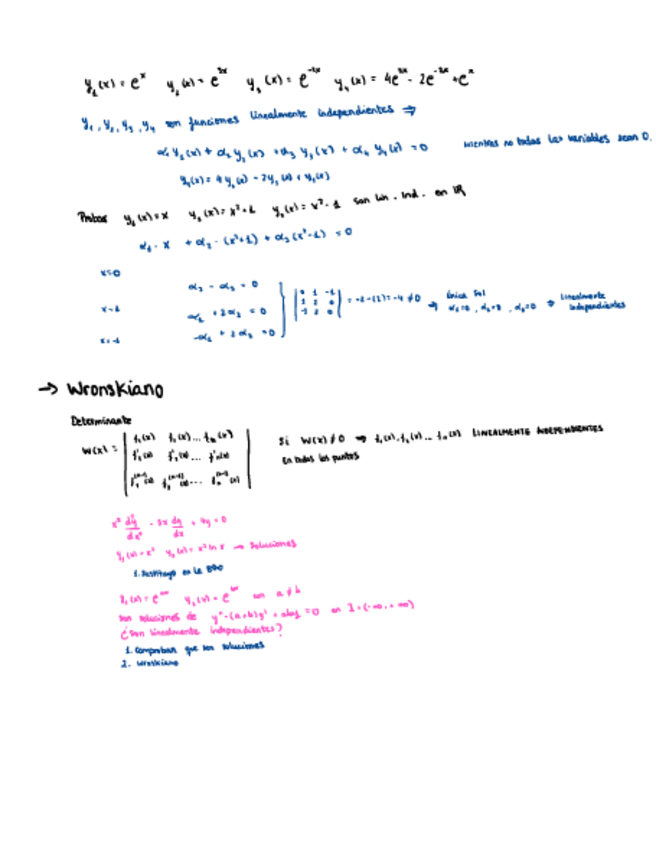 y₁(x) = eˣ y₂(x) = e³ˣ y₃(x) = e⁻²ˣ y₄(x) = 4e³ˣ - 2e⁻²ˣ + eˣ
y₁, y₂, y₃, y₄ son funciones linealmente independientes ⇒
α₁ y₁(x) + α₂ y₂(x) + α₃ y₃(x) + α₄ y₄(x) = 0 mientras no todas las variables sean 0.
y₄(x) = 4 y₂(x) - 2y₃(x) + y₁(x)
Probar y₁(x) = x y₂(x) = x²+1 y₃(x) = x²-1 son lin. Ind. en ℝ
α₁ · x + α₂ · (x²+1) + α₃ (x²-1) = 0
x=0 α₂ - α₃ = 0
x=1 α₁ + 2α₂ = 0 | 0 1 -1 | 1 2 0 | -1 2 0 | = -2-(2) = -4 ≠ 0 ⇒ Única Sol α₁=0, α₂=0, α₃=0 ⇒ linealmente independientes
x=-1 -α₁ + 2α₂ = 0
→ Wronskiano
Determinante
W(x) = | f₁(x) f₂(x) ... fₙ(x) |
| f'₁(x) f'₂(x) ... f'ₙ(x) |
| f₁⁽ⁿ⁻¹⁾(x) f₂⁽ⁿ⁻¹⁾(x) ... fₙ⁽ⁿ⁻¹⁾(x) |
Si W(x) ≠ 0 ⇒ f₁(x), f₂(x) ... fₙ(x) LINEALMENTE INDEPENDIENTES
en todos los puntos
x² d²y/dx² - 3x dy/dx + 4y = 0
y₁(x) = x² y₂(x) = x² ln x → Soluciones
1. Sustituyo en la EDO
y₁(x) = eᵃˣ y₂(x) = eᵇˣ con a ≠ b
son soluciones de y'' - (a+b)y' + aby = 0 en I = (-∞, +∞)
¿Son linealmente independientes?
1. Comprobar que son soluciones
2. Wronskiano